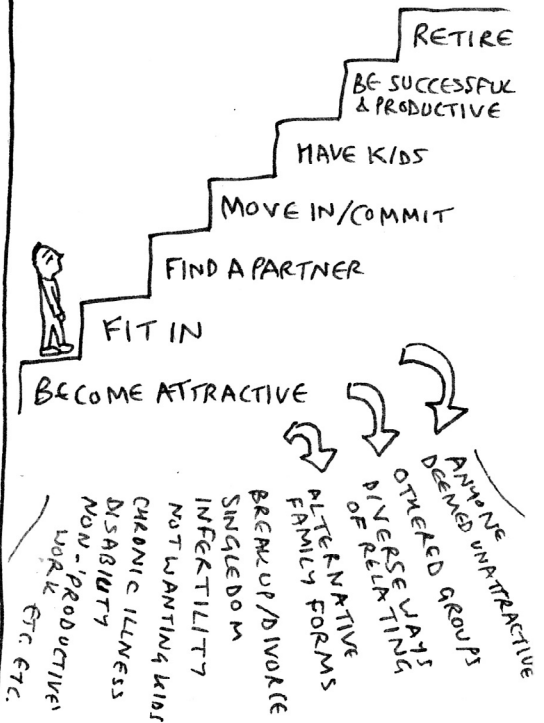 RETIRE
BE SUCCESSFUL
& PRODUCTIVE
HAVE KIDS
MOVE IN/COMMIT
FIND A PARTNER
FIT IN
BECOME ATTRACTIVE
ANYONE
DEEMED UNATTRACTIVE
OTHERED GROUPS
DIVERSE WAYS
OF RELATING
ALTERNATIVE
FAMILY FORMS
BREAK UP/DIVORCE
SINGLEDOM
INFERTILITY
NOT WANTING KIDS
CHRONIC ILLNESS
DISABILITY
NON-'PRODUCTIVE'
WORK
ETC ETC.